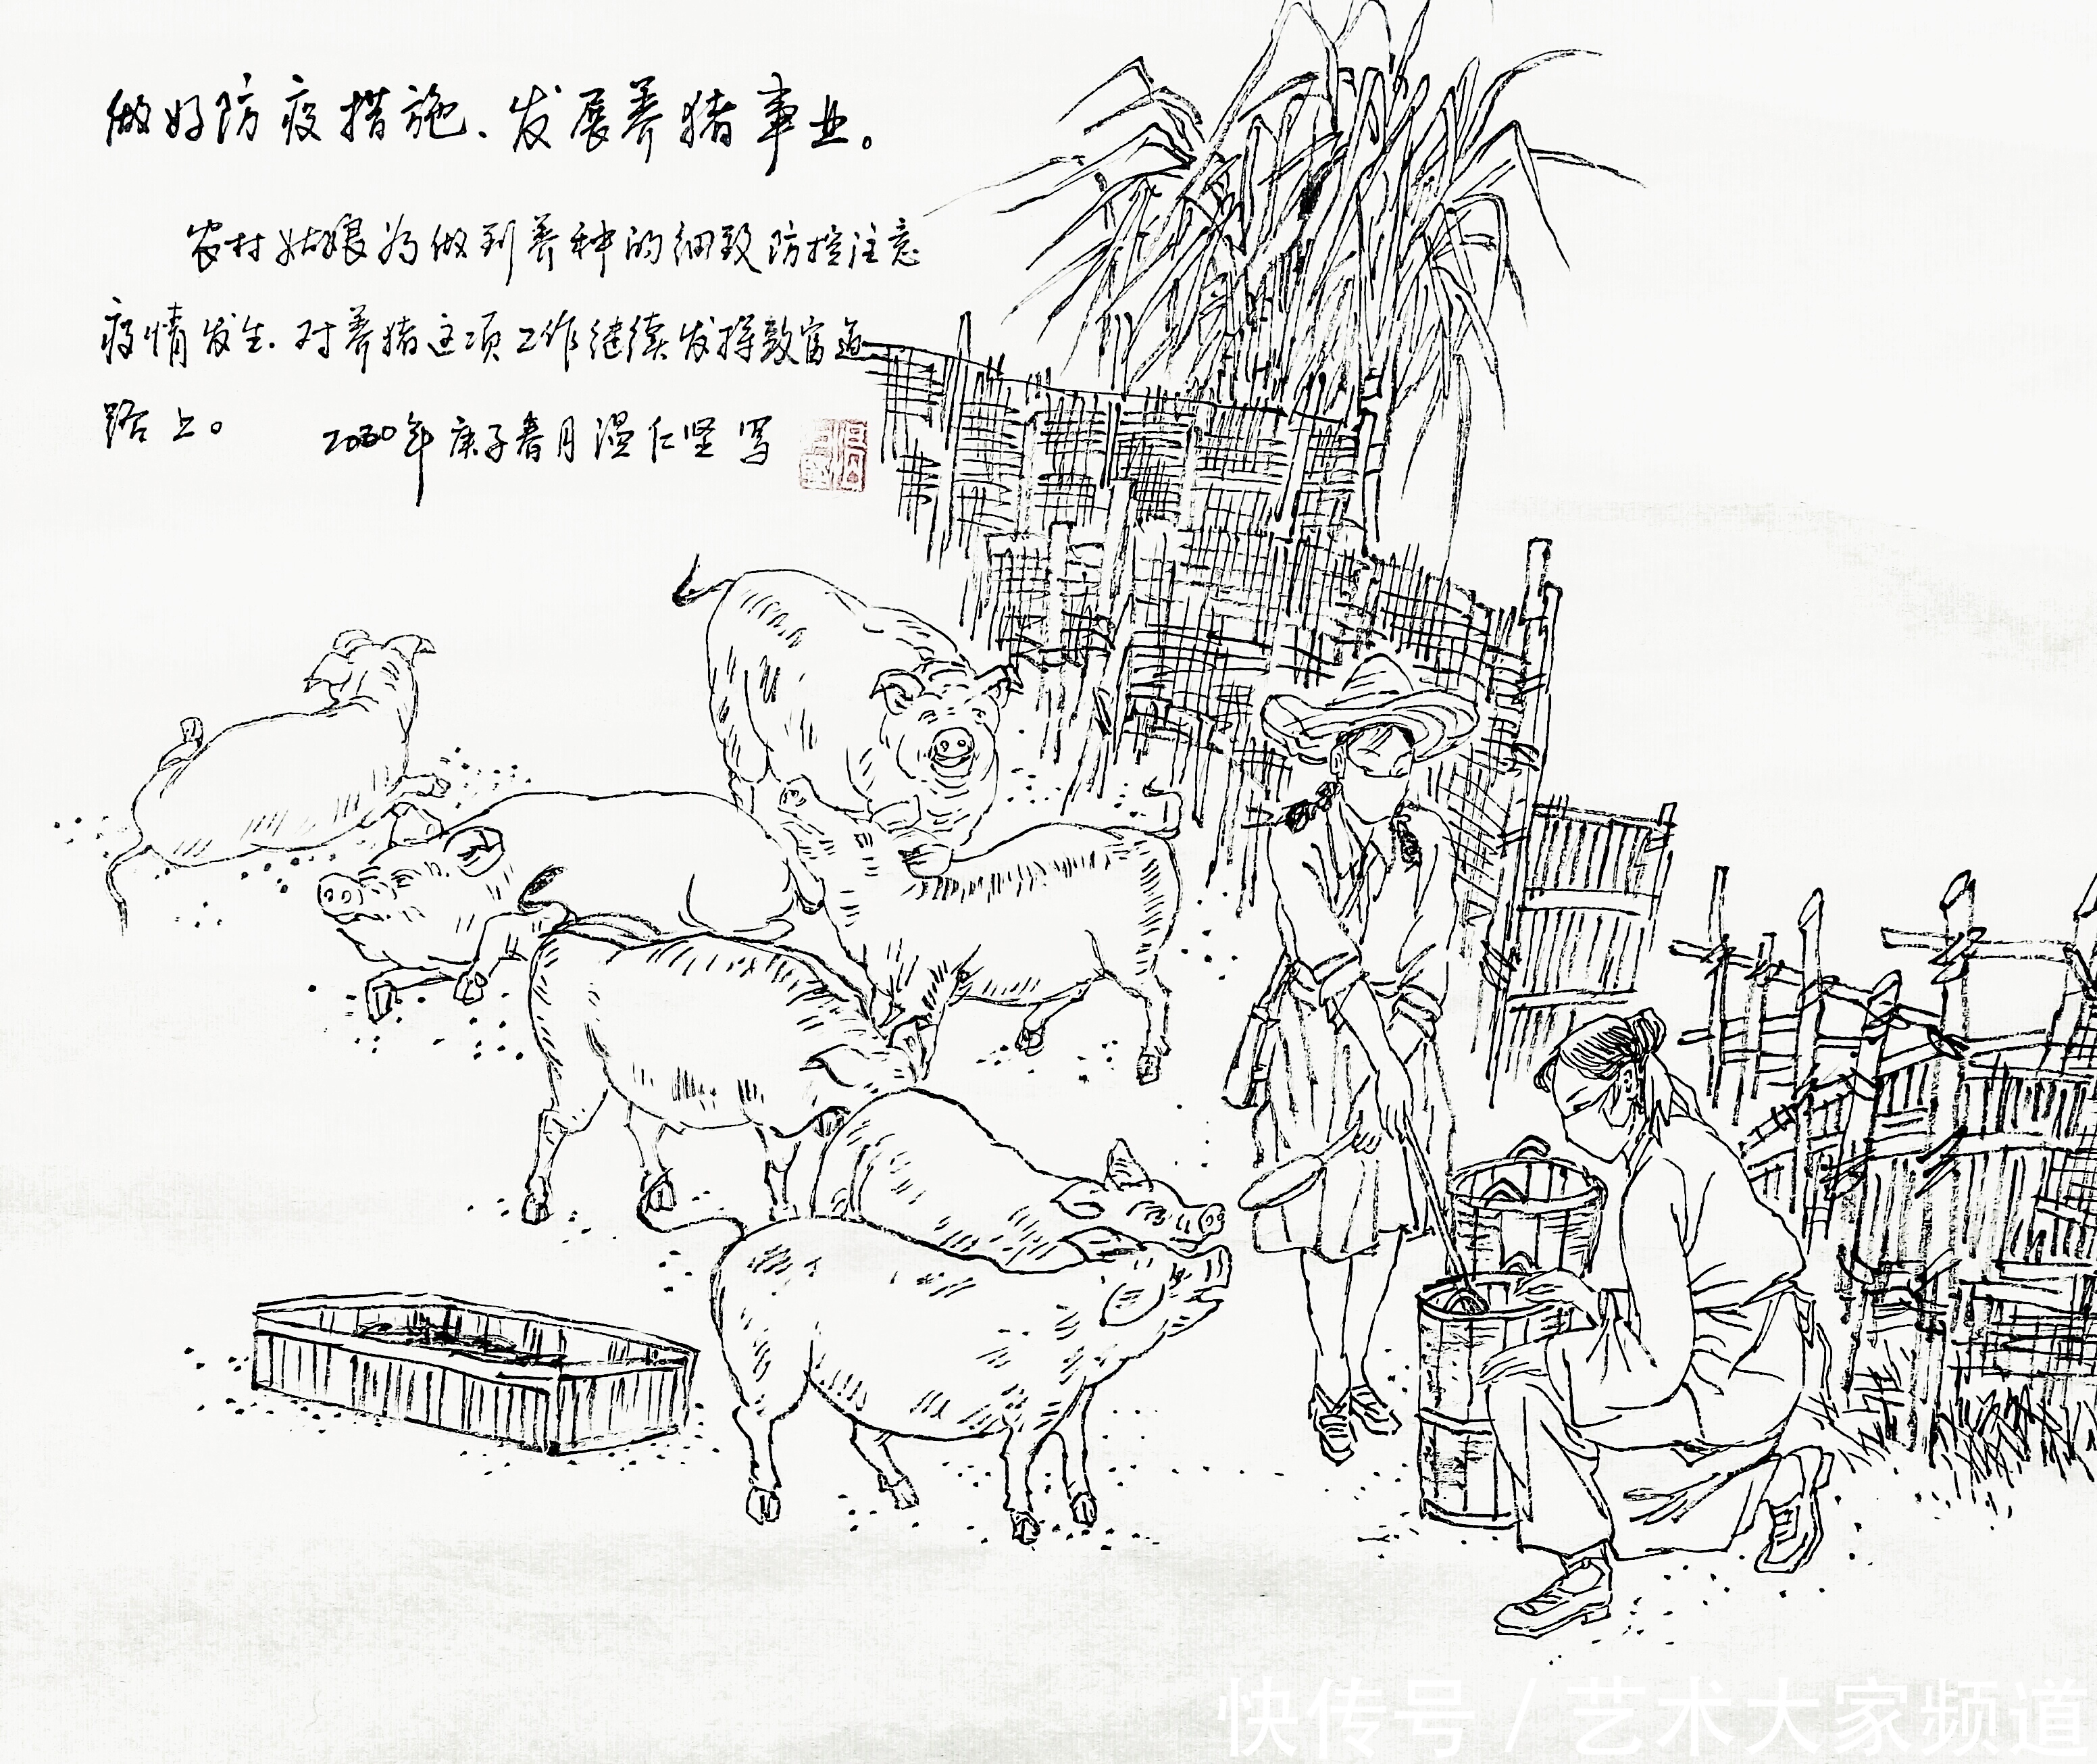 做好防疫措施、发展养猪事业。
农村姑娘为做到养种的细致防控注意
疫情发生.对养猪这项工作继续发挥致富道
路上。
2020年庚子春月温仁坚写
快传号/艺术大家频道